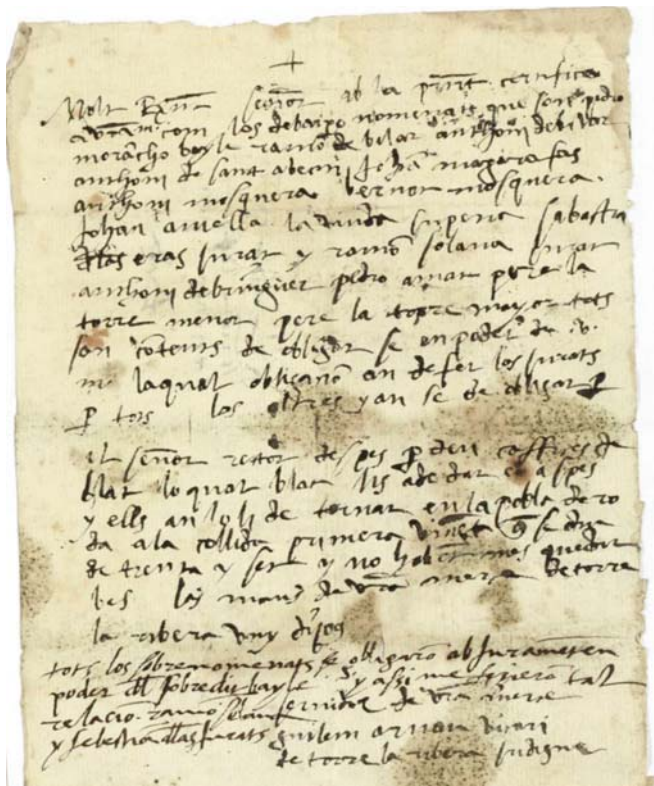 +
Molt Exnt señor ab la prnt certifica
a vra m com los debaixo nomenats que son pedro
morancho bayle ramo de vilar anthoni de bivar
anthoni de sant abenti Johan magarafas
anthoni mosquera bernat mosquera
Johan arvella la viuda superia sabastia
dlas eras Jurat y ramo solana Jurat
anthoni de bringuer pedro aznar pere la
torre menor pere la torre mayor tots
son contents de obligar se en poder de v.
m laqual obligacio an de fer los Jurats
p tots los altres y an se de obligar p
el señor retor despes p deu caffices de
blat lo quol blat lis a de dar el a spes
y ells an lo li de tornar en la pobla de ro
da a la collida primera vinent q se dira
de trenta y set y no habent mes quedar
bes las mans de vra merce de torre
la ribera Juny
tots los sobrenomenats se obligaro ab Jurament en
poder dl sobredit bayle y assi me fizieron tal
relacio ramo solana servidor de vra merce
y sebestia dlas Jurats guilem arnau vicari
de torre la ribera indigne